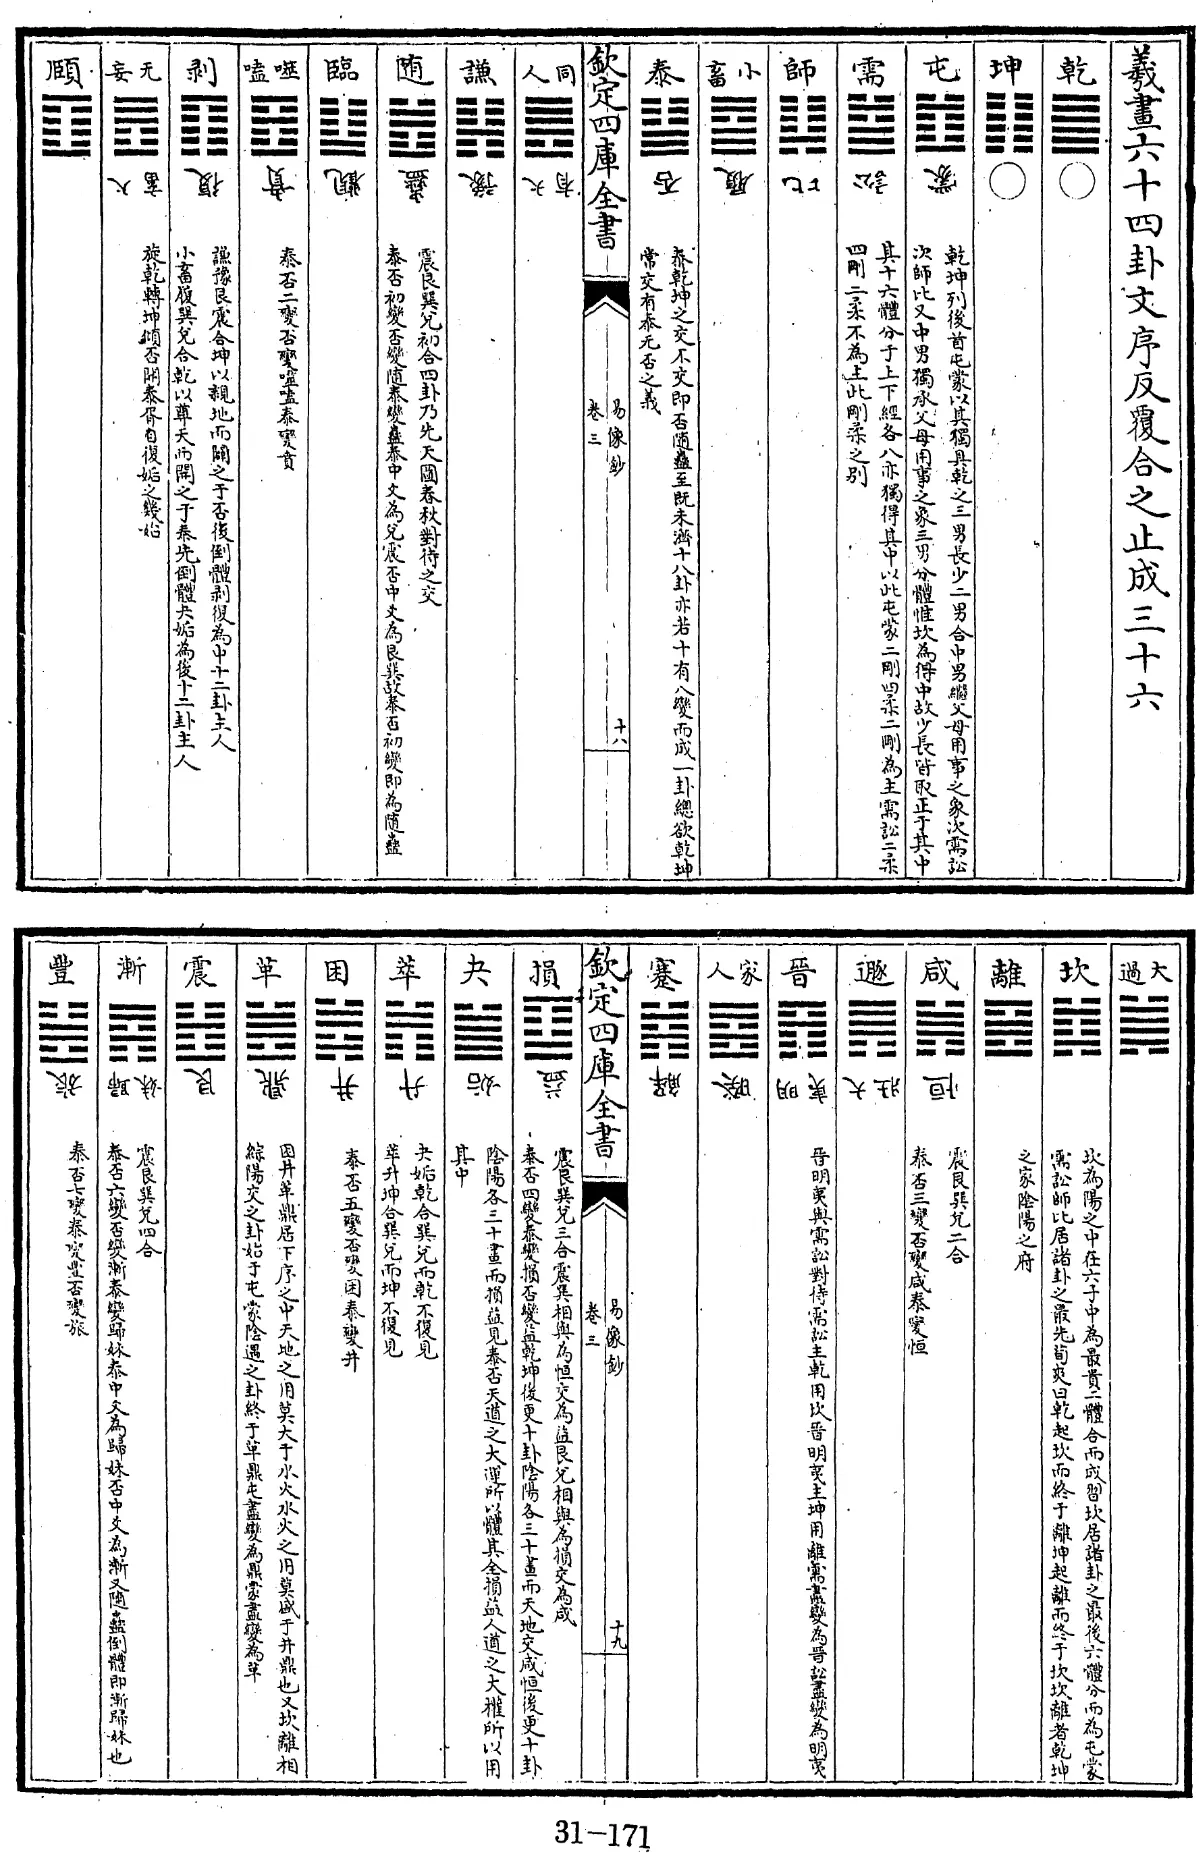 羲畫六十四卦文序反覆合之止成三十六
乾
〇
坤
〇
屯
蒙
乾坤列後首屯蒙以其獨具乾之三男長少二男合中男繼父母用事之象次需訟
次師比又中男獨承父母用事之象三男分體惟坎為得中故少長皆取正于其中
需
訟
其十六體分于上下經各八亦獨得其中以此屯蒙二剛四柔二剛為主需訟二柔
四剛二柔不為主此剛柔之別
師
比
小畜
履
泰
否
泰乾坤之交不交即否隨蠱至既未濟十八卦亦若十有八變而成一卦總欲乾坤
常交有泰无否之義
欽定四庫全書
易像鈔
卷三
十八
同人
大有
謙
豫
随
蠱
震艮巽兌初合四卦乃先天圖春秋對待之交
泰否初變否變隨泰變蠱泰中爻為兌震否中爻為艮巽故泰否初變即為隨蠱
臨
觀
噬嗑
賁
泰否二變否變噬嗑泰變賁
剥
復
謙豫艮震合坤以親地而闢之于否後倒體剥復為中十二卦主人
小畜履巽兌合乾以尊天而開之于泰先倒體夬姤為後十二卦主人
无妄
大畜
旋乾轉坤傾否開泰胥自復姤之幾始
頤
大過
坎
坎為陽之中在六子中為最貴二體合而成習坎居諸卦之最後六體分而為屯蒙
需訟師比居諸卦之最先荀爽曰乾起坎而終于離坤起離而終于坎坎離者乾坤
之家陰陽之府
離
咸
恒
震艮巽兌二合
泰否三變否變咸泰變恒
遯
大壯
晉
明夷
晉明夷與需訟對待需訟主乾用坎晉明夷主坤用離需盡變為晉訟盡變為明夷
家人
睽
蹇
解
欽定四庫全書
易像鈔
卷三
十九
損
益
震艮巽兌三合震巽相與為恒交為益艮兌相與為損交為咸
泰否四變泰變損否變益乾坤後更十卦陰陽各三十畫而天地交咸恒後更十卦
陰陽各三十畫而損益見泰否天道之大運所以體其全損益人道之大權所以用
其中
夬
姤
夬姤乾合巽兌而乾不復見
萃升坤合巽兌而坤不復見
萃
升
困
井
泰否五變否變困泰變井
革
鼎
困井革鼎居下序之中天地之用莫大于水火水火之用莫盛于井鼎也又坎離相
綜陽交之卦始于屯蒙陰遇之卦終于革鼎屯盡變為鼎蒙盡變為革
震
艮
漸
歸妹
震艮巽兌四合
泰否六變否變漸泰變歸妹泰中爻為歸妹否中爻為漸又隨蠱倒體即漸歸妹也
豐
旅
泰否七變泰變豐否變旅
31-171